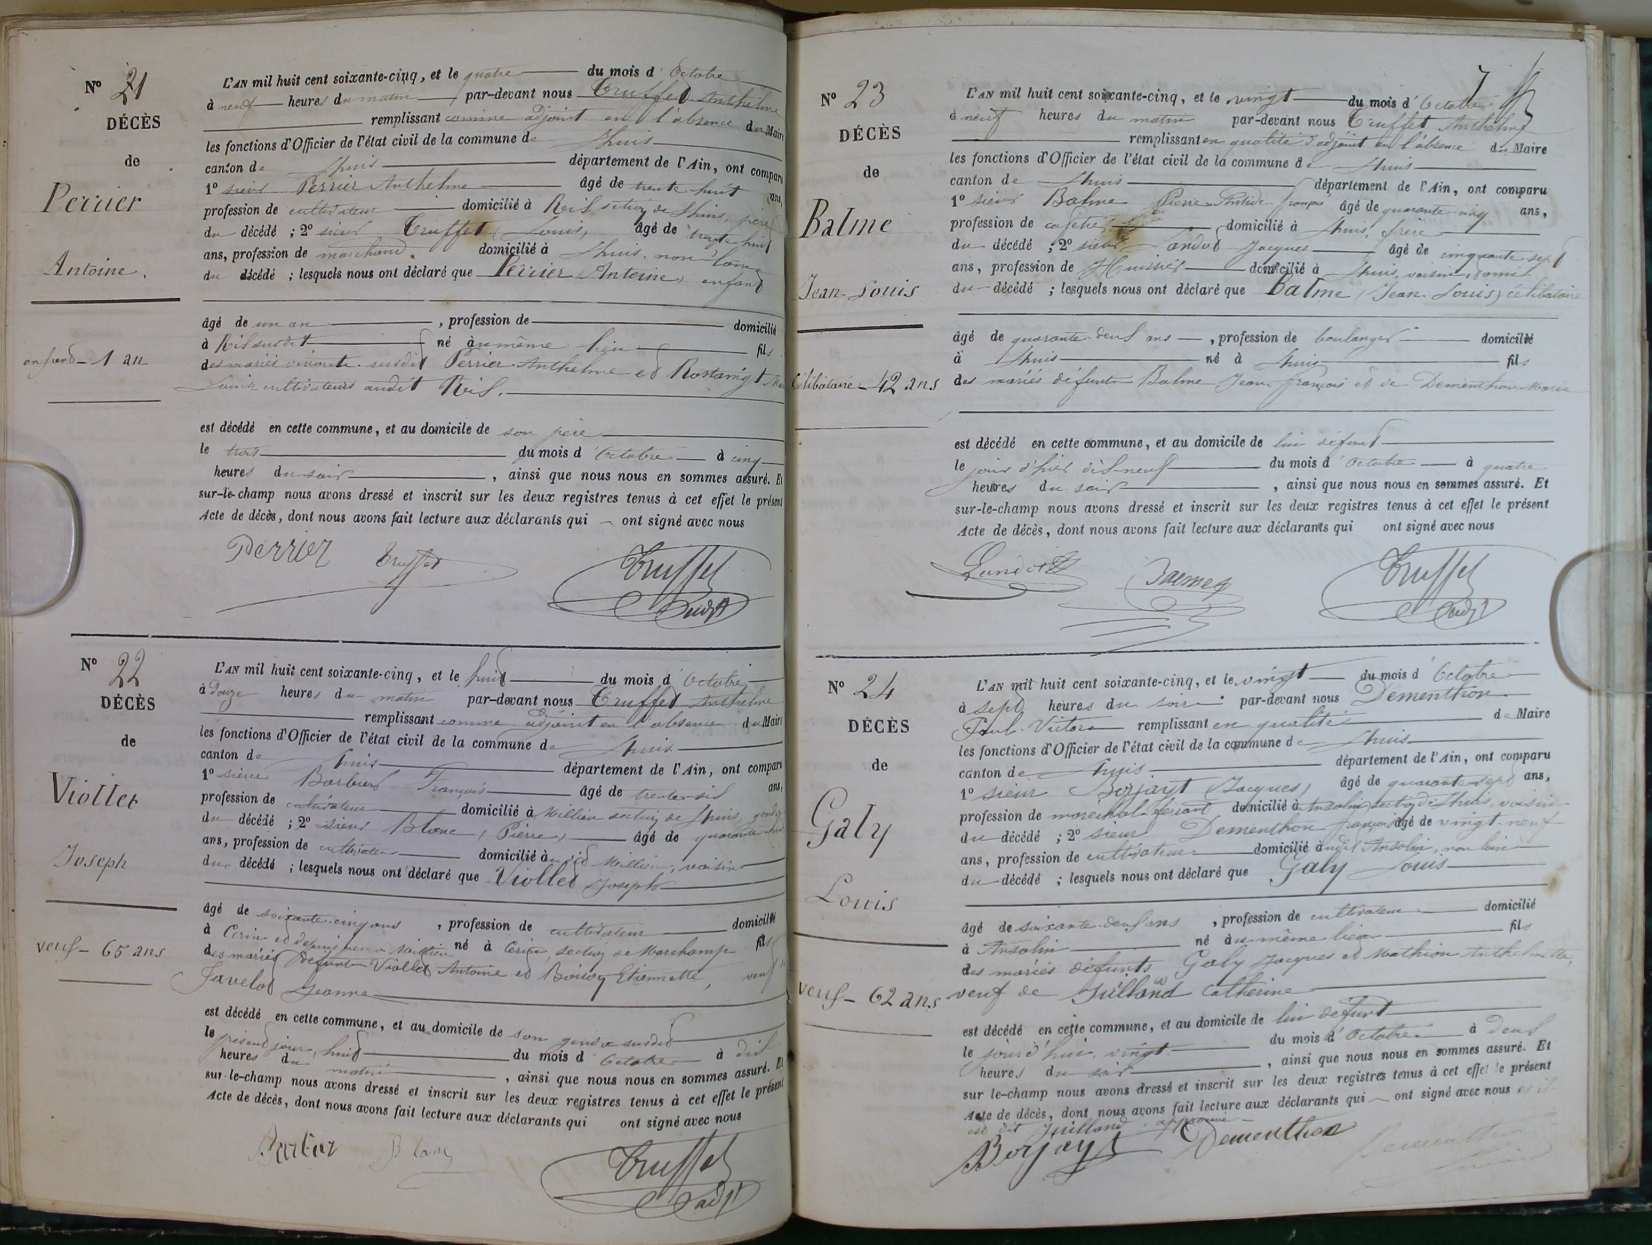 N° 21
DÉCÈS
de
Perrier
Antoine.
enfant - 1 an
L'AN mil huit cent soixante-cinq, et le quatre du mois d'Octobre
à neuf heures du matin par-devant nous Truffet Anthelme
remplissant comme adjoint en l'absence du Maire
les fonctions d'Officier de l'état civil de la commune de Lhuis
canton de Lhuis département de l'Ain, ont comparu
1° sieur Perrier Anthelme âgé de trente huit ans,
profession de cultivateur domicilié à Rix section de Lhuis, père
du décédé ; 2° sieur Truffet Louis, âgé de trente huit
ans, profession de marchand. domicilié à Lhuis, non loin
du décédé ; lesquels nous ont déclaré que Perrier Antoine, enfant
âgé de un an , profession de domicilié
à Rix susdit né à même lieu fils
des mariés susdit Perrier Anthelme et
cultivateurs audit Rix.
est décédé en cette commune, et au domicile de son père
le trois du mois d'Octobre à cinq
heures du soir , ainsi que nous nous en sommes assuré. Et
sur-le-champ nous avons dressé et inscrit sur les deux registres tenus à cet effet le présent
Acte de décès, dont nous avons fait lecture aux déclarants qui ont signé avec nous
Perrier Truffet Truffet adjt
N° 22
DÉCÈS
de
Viollet
Joseph
veuf - 65 ans
L'AN mil huit cent soixante-cinq, et le huit du mois d'Octobre
à Douze heures du matin par-devant nous Truffet Anthelme
remplissant comme adjoint en l'absence du Maire
les fonctions d'Officier de l'état civil de la commune de Lhuis
canton de Lhuis département de l'Ain, ont comparu
1° sieur Barbier François âgé de trente six ans,
profession de cultivateur domicilié à Millieu section de Lhuis, gendre
du décédé ; 2° sieur Blanc, Pierre, âgé de quarante
ans, profession de cultivateur domicilié à Millieu, voisin
du décédé ; lesquels nous ont déclaré que Viollet Joseph
âgé de soixante-cinq ans , profession de cultivateur domicilié
à Cerin et né à Cerin, section de Marchamp fils
des mariés défunts Viollet Antoine et Etiennette, veuf de
Javelot Jeanne
est décédé en cette commune, et au domicile de son gendre susdit
le présent jour, huit du mois d'Octobre à dix
heures du matin , ainsi que nous nous en sommes assuré. Et
sur-le-champ nous avons dressé et inscrit sur les deux registres tenus à cet effet le présent
Acte de décès, dont nous avons fait lecture aux déclarants qui ont signé avec nous
Barbier Blanc Truffet adjt
7
N° 23
DÉCÈS
de
Balme
Jean-Louis
Célibataire - 42 ans
L'AN mil huit cent soixante-cinq, et le vingt du mois d'Octobre
à neuf heures du matin par-devant nous Truffet Anthelme
remplissant en qualité d'adjoint en l'absence du Maire
les fonctions d'Officier de l'état civil de la commune de Lhuis
canton de Lhuis département de l'Ain, ont comparu
1° sieur Balme Pierre françois âgé de quarante cinq ans,
profession de cafetier domicilié à Lhuis, frère
du décédé ; 2° sieur Jacques âgé de cinquante sept
ans, profession de Huissier domicilié à Lhuis, voisin, ami
du décédé ; lesquels nous ont déclaré que Balme (Jean-Louis) célibataire
âgé de quarante-deux ans , profession de boulanger domicilié
à Lhuis né à Lhuis fils
des mariés défunts Balme Jean françois et de Dementhon Marie
est décédé en cette commune, et au domicile de lui défunt
le jour d'hier dix-neuf du mois d'Octobre à quatre
heures du soir , ainsi que nous nous en sommes assuré. Et
sur-le-champ nous avons dressé et inscrit sur les deux registres tenus à cet effet le présent
Acte de décès, dont nous avons fait lecture aux déclarants qui ont signé avec nous
Truffet adjt
N° 24
DÉCÈS
de
Galy
Louis
veuf - 62 ans
L'AN mil huit cent soixante-cinq, et le vingt du mois d'Octobre
à sept heures du soir par-devant nous Dementhon
Paul Victor remplissant en qualité de Maire
les fonctions d'Officier de l'état civil de la commune de Lhuis
canton de Lhuis département de l'Ain, ont comparu
1° sieur Borjayt (Jacques) âgé de quarante sept ans,
profession de maréchal ferrant domicilié à Ansolin, section de Lhuis, voisin
du décédé ; 2° sieur Dementhon françois âgé de vingt-neuf
ans, profession de cultivateur domicilié audit Ansolin, non loin
du décédé ; lesquels nous ont déclaré que Galy Louis
âgé de soixante-deux ans , profession de cultivateur domicilié
à Ansolin né au même lieu fils
des mariés défunts Galy Jacques et Mathion Anthelmette,
veuf de Juilland Catherine
est décédé en cette commune, et au domicile de lui défunt
le jour d'hui vingt du mois d'Octobre à deux
heures du soir , ainsi que nous nous en sommes assuré. Et
sur le-champ nous avons dressé et inscrit sur les deux registres tenus à cet effet le présent
Acte de décès, dont nous avons fait lecture aux déclarants qui ont signé avec nous
Juilland approuvé
Borjayt Dementhon